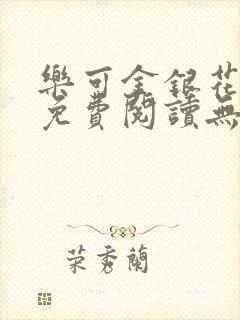 樂可金銀花
免費閱讀無
荣秀蘭